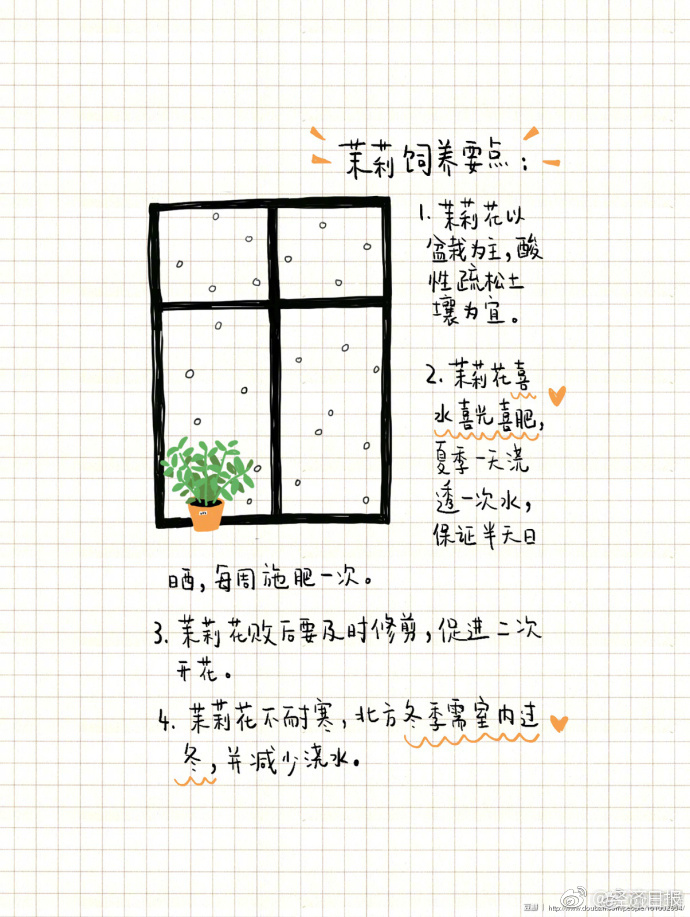 茉莉饲养要点：
1. 茉莉花以
盆栽为主，酸
性疏松土
壤为宜。
2. 茉莉花喜
水喜光喜肥，
夏季一天浇
透一次水，
保证半天日
晒，每周施肥一次。
3. 茉莉花败后要及时修剪，促进二次
开花。
4. 茉莉花不耐寒，北方冬季需室内过
冬，并减少浇水。
@经济日报
豆瓣